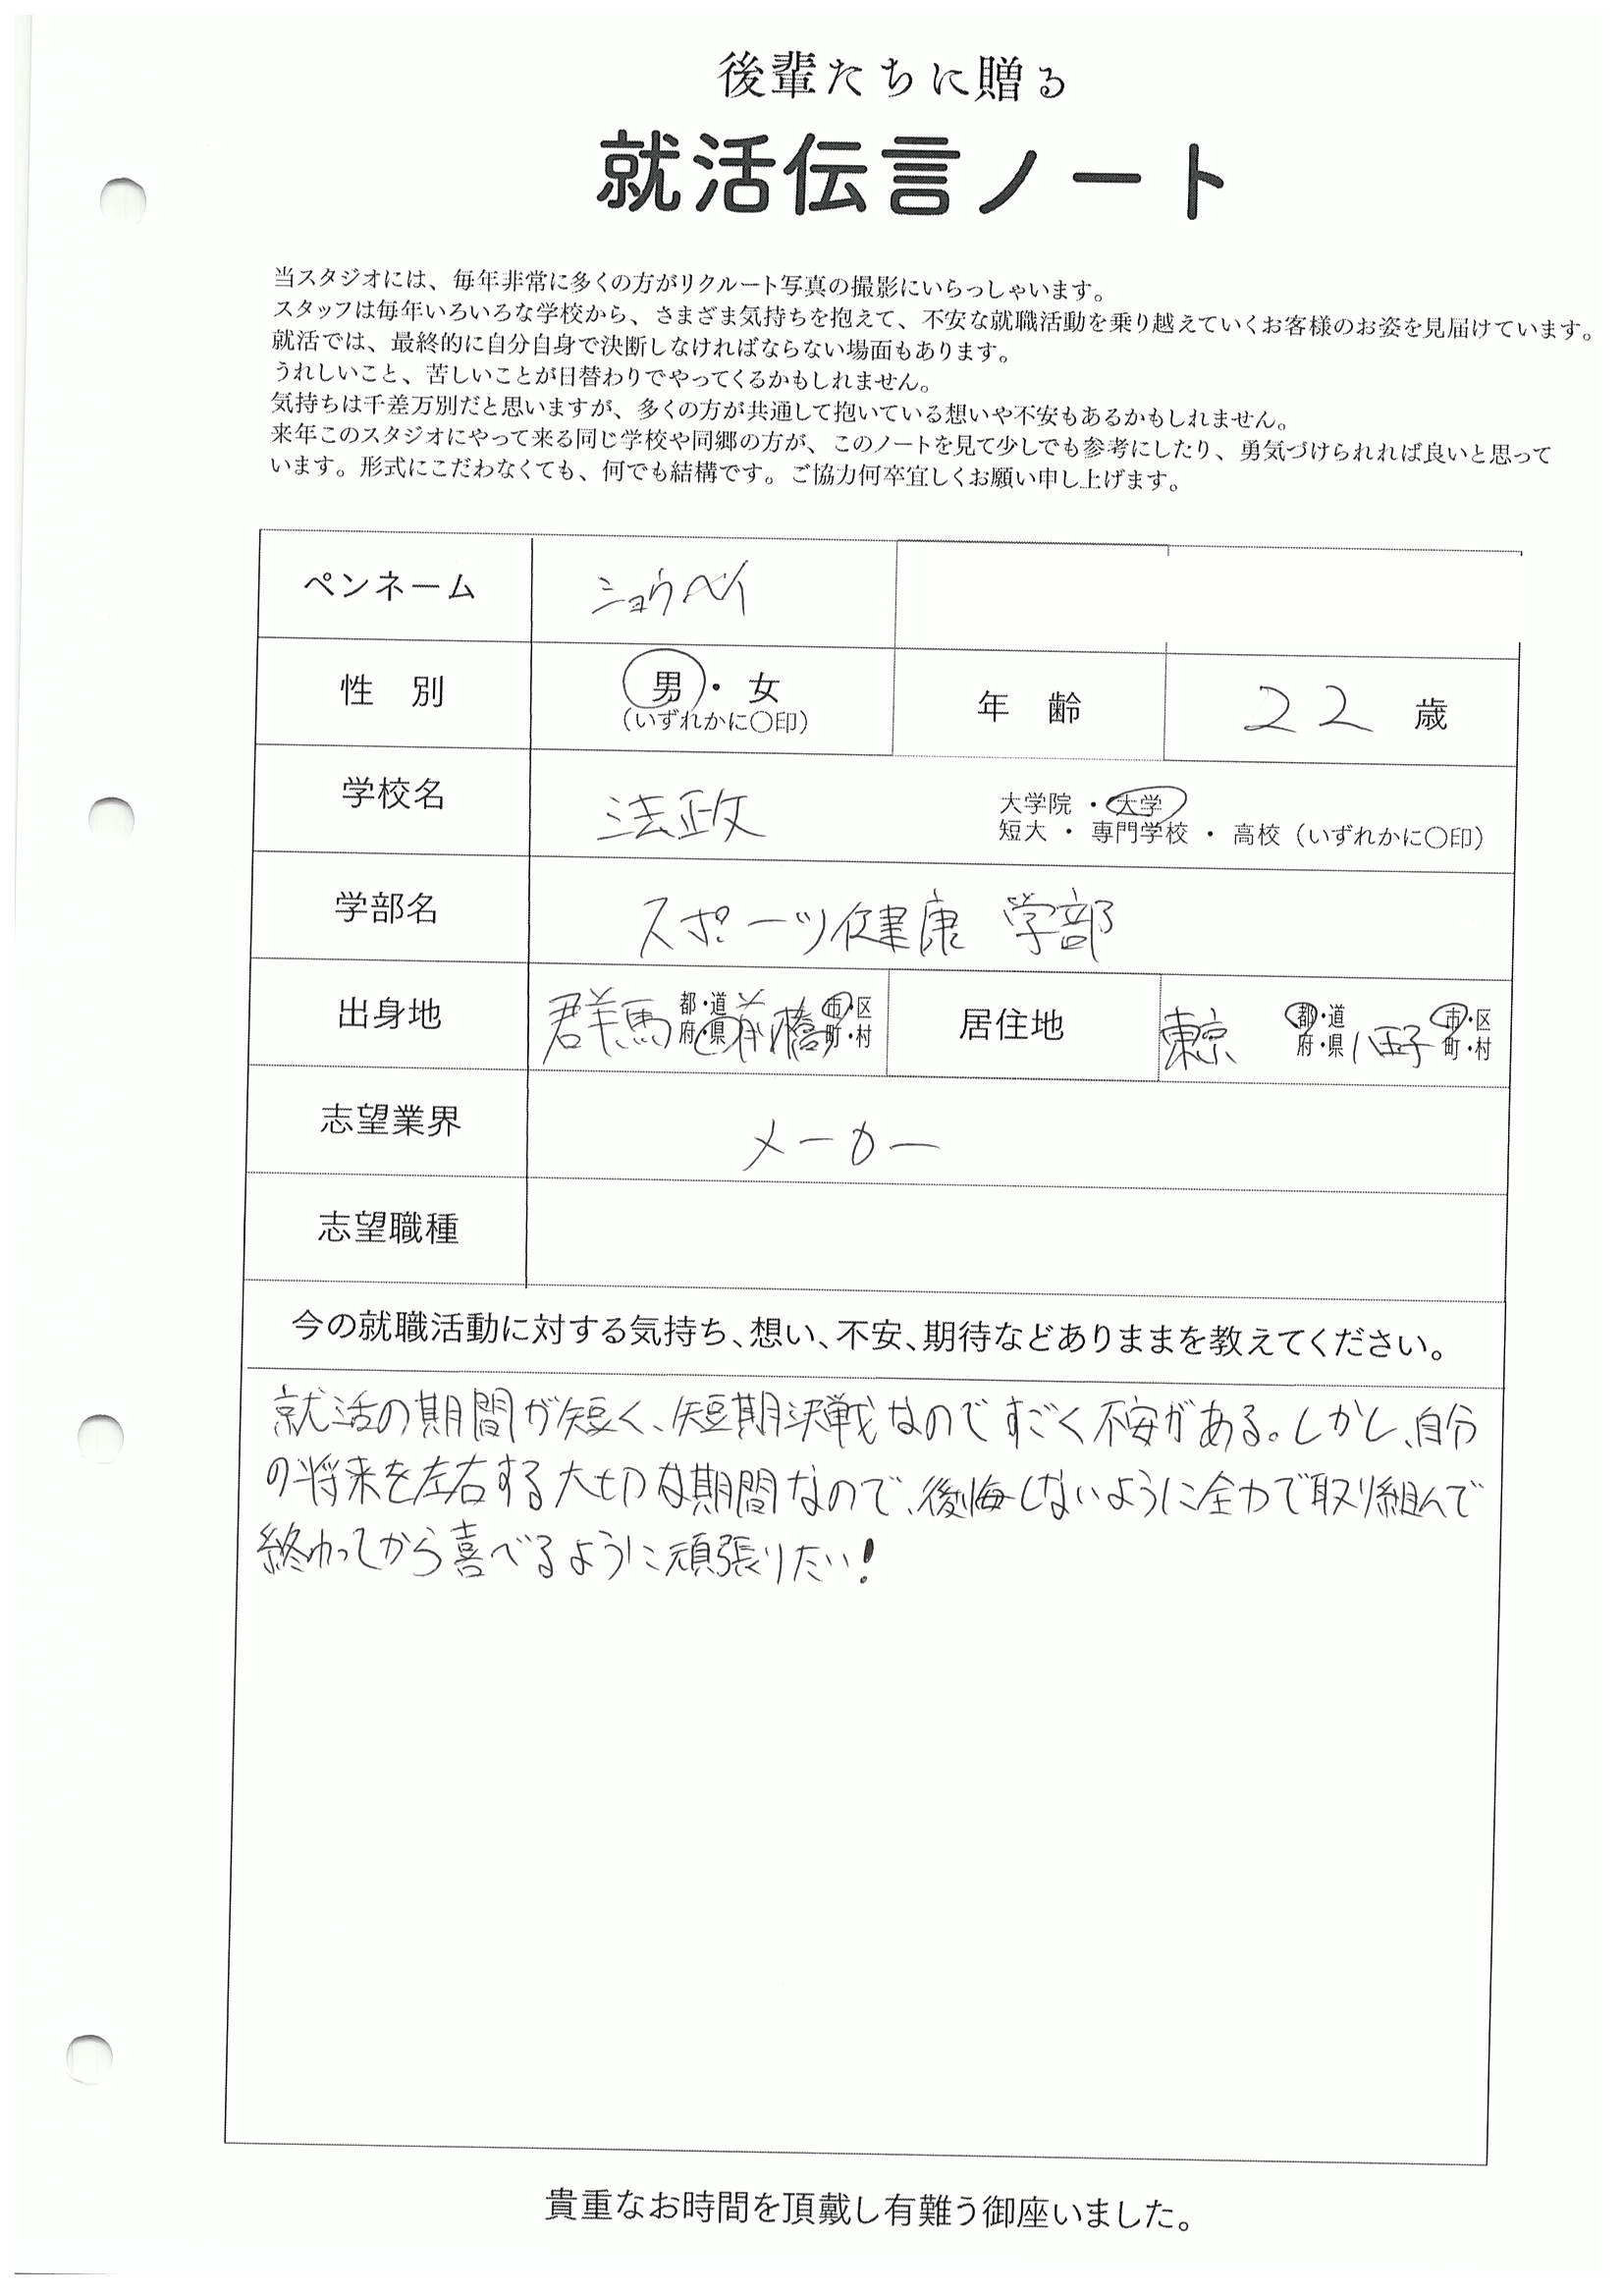 後輩たちに贈る
就活伝言ノート
当スタジオには、毎年非常に多くの方がリクルート写真の撮影にいらっしゃいます。
スタッフは毎年いろいろな学校から、さまざま気持ちを抱えて、不安な就職活動を乗り越えていくお客様のお姿を見届けています。
就活では、最終的に自分自身で決断しなければならない場面もあります。
うれしいこと、苦しいことが日替わりでやってくるかもしれません。
気持ちは千差万別だと思いますが、多くの方が共通して抱いている想いや不安もあるかもしれません。
来年このスタジオにやって来る同じ学校や同郷の方が、このノートを見て少しでも参考にしたり、勇気づけられれば良いと思って
います。形式にこだわなくても、何でも結構です。ご協力何卒宜しくお願い申し上げます。
ペンネーム ショウヘイ
性 別 男・女 年 齢 22 歳
(いずれかに〇印)
学校名 法政 大学院・大学
短大・専門学校・高校(いずれかに〇印)
学部名 スポーツ健康 学部
出身地 群馬 都・道府・県 前橋 市・区町・村 居住地 東京 都・道府・県 八王子 市・区町・村
志望業界 メーカー
志望職種
今の就職活動に対する気持ち、想い、不安、期待などありままを教えてください。
就活の期間が短く、短期決戦なのですごく不安がある。しかし、自分
の将来を左右する大切な期間なので、後悔しないように全力で取り組んで
終わってから喜べるように頑張りたい!
貴重なお時間を頂戴し有難う御座いました。